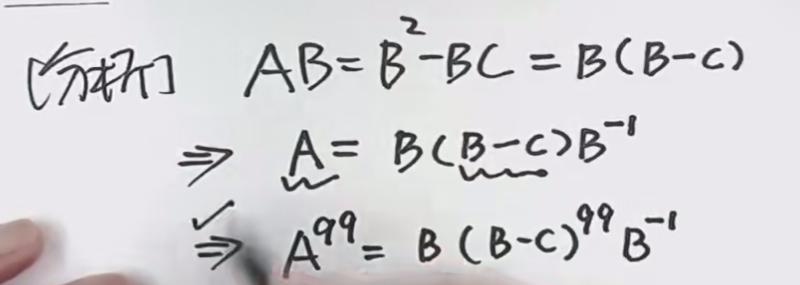 [分析] AB=B²-BC=B(B-C)
⇒ A=B(B-C)B⁻¹
⇒ A⁹⁹=B(B-C)⁹⁹B⁻¹